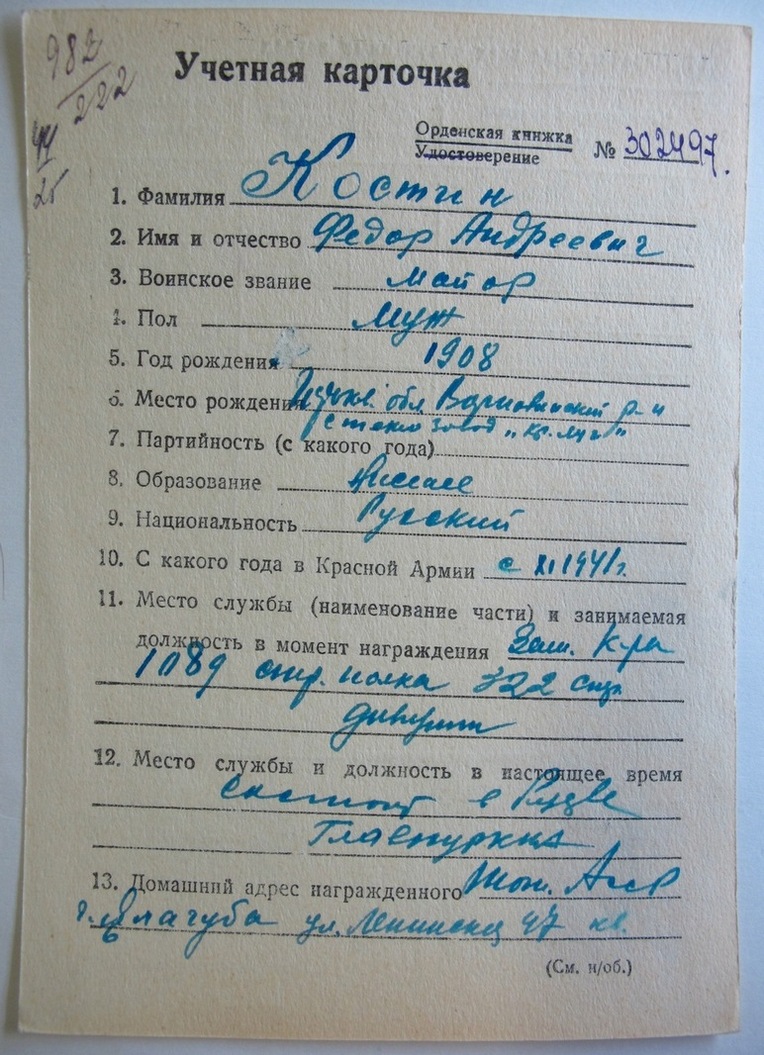 982/222
44
25
Учетная карточка
Орденская книжка
Удостоверение
№ 302497.
1. Фамилия Костин
2. Имя и отчество Федор Андреевич
3. Воинское звание майор
4. Пол муж
5. Год рождения 1908
6. Место рождения обл р-н
завод „Кр. Луч"
7. Партийность (с какого года)
8. Образование высшее
9. Национальность Русский
10. С какого года в Красной Армии с XI 1941г.
11. Место службы (наименование части) и занимаемая
должность в момент награждения Зам. К-ра
1089 стр. полка 322 стр.
дивизии
12. Место службы и должность в настоящее время
состоит в
13. Домашний адрес награжденного
г. ул. 47 кв.
(См. н/об.)